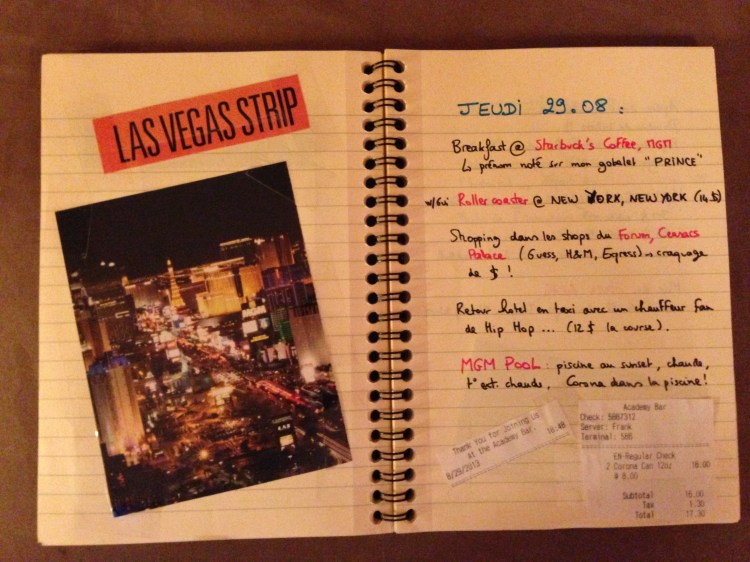 LAS VEGAS STRIP
JEUDI 29.08 :
Breakfast @ Starbuck's Coffee, MGM
↳ prénom noté sur mon gobelet "PRINCE"
Roller coaster @ NEW YORK, NEW YORK (14 $)
Shopping dans les shops du Forum, Ceasars
Palace (Guess, H&M, Express) → craquage
de $ !
Retour hotel en taxi avec un chauffeur fan
de Hip Hop ... (12 $ la course).
MGM POOL : piscine au sunset, chaude,
t° ext. chaude, Corona dans la piscine !
Thank You for Joining Us
At the Academy Bar.
8/29/2013 18:48
Academy Bar
Check: 5867312
Server: Frank
Terminal: 588
EN-Regular Check
2 Corona Can 12oz 16.00
@ 8.00
Subtotal 16.00
Tax 1.30
Total 17.30